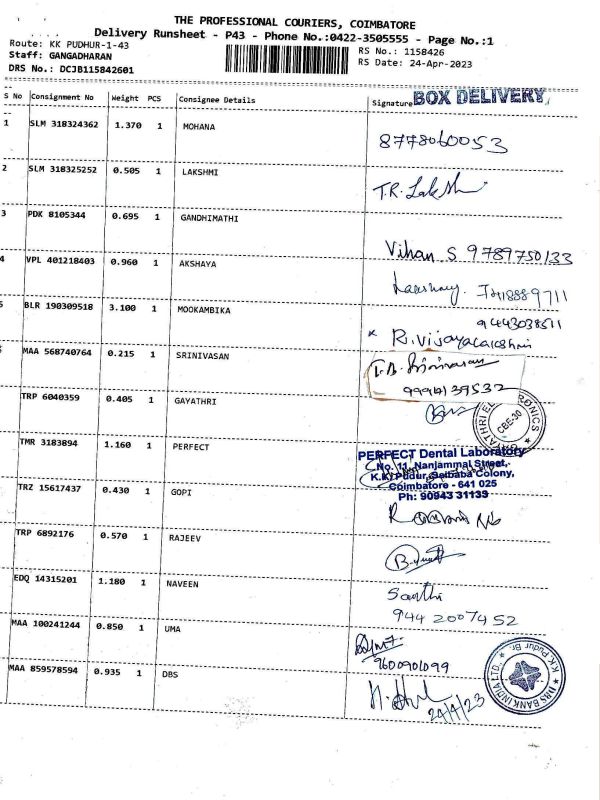 THE PROFESSIONAL COURIERS, COIMBATORE
Delivery Runsheet - P43 - Phone No.:0422-3505555 - Page No.:1
Route: KK PUDHUR-1-43 RS No.: 1158426
Staff: GANGADHARAN RS Date: 24-Apr-2023
DRS No.: DCJB115842601
S No Consignment No Weight PCS Consignee Details Signature BOX DELIVERY
1 SLM 318324362 1.370 1 MOHANA 8778060053
2 SLM 318325252 0.505 1 LAKSHMI T.R. Lakshmi
3 PDK 8105344 0.695 1 GANDHIMATHI Vihan S 9789750133
4 VPL 401218403 0.960 1 AKSHAYA
5 BLR 190309518 3.100 1 MOOKAMBIKA 9443038511
R. Vijayalakshmi
MAA 568740764 0.215 1 SRINIVASAN T.B. Srinivasan
9994139532
TRP 6040359 0.405 1 GAYATHRI CBE-30
TMR 3183894 1.160 1 PERFECT PERFECT Dental Laboratory
No. 11, Nanjammal Street,
K.K. Pudur, Saibaba Colony,
Coimbatore - 641 025
Ph: 90943 31133
TRZ 15617437 0.430 1 GOPI
TRP 6892176 0.570 1 RAJEEV
EDQ 14315201 1.180 1 NAVEEN Santhi
944 2007452
MAA 100241244 0.850 1 UMA
9600901099
MAA 859578594 0.935 1 DBS
24/4/23
DBS BANK INDIA LTD., K.K. Pudur Br.